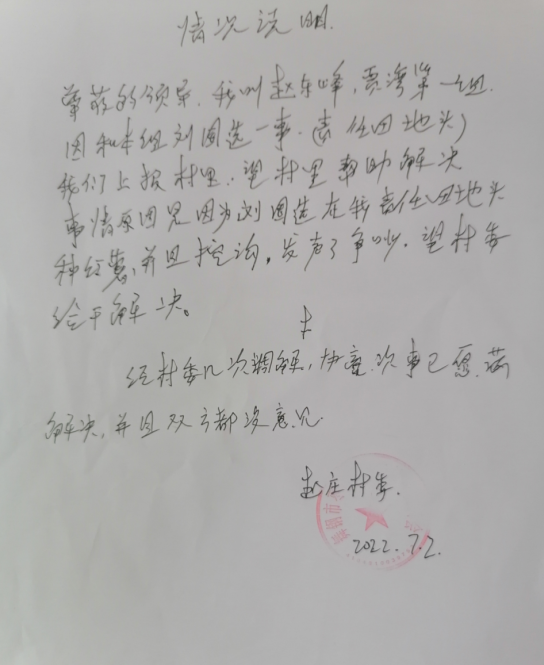 情况说明
尊敬的领导,我叫赵东峰,贾湾第一组.
因和本组刘国选一事.责任田地头,
我们上报村里.望村里帮助解决
事情原因是因为刘国选在我责任田地头
种红薯,并且挖沟,发声了争吵.望村委
给于解决。
经村委几次调解,协商.次事已愿满
解决,并且双方都没意见.
赵庄村委.
2022.7.2.